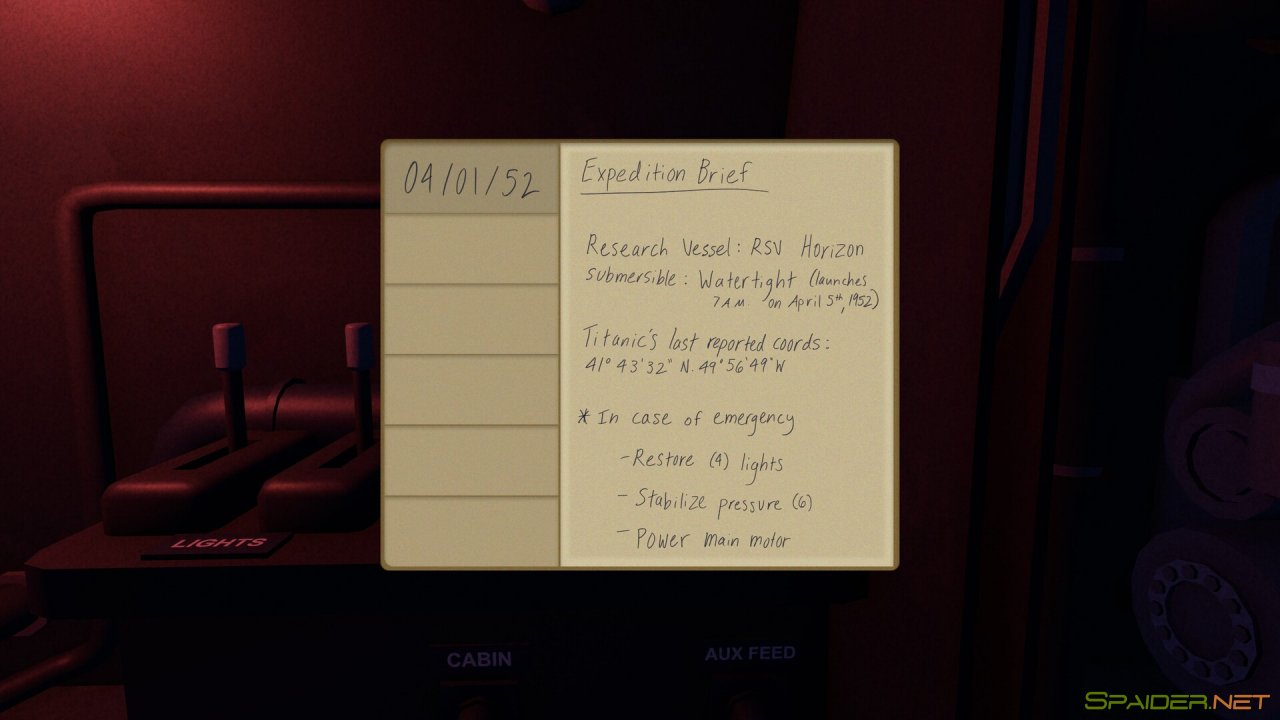 04/01/52
Expedition Brief
Research Vessel: RSV Horizon
Submersible: Watertight (launches
7 A.M. on April 5th, 1952)
Titanic's last reported coords:
41° 43' 32" N. 49° 56' 49" W
* In case of emergency
- Restore (4) lights
- Stabilize pressure (6)
- Power main motor
LIGHTS
CABIN
AUX FEED
SPAIDER.NET